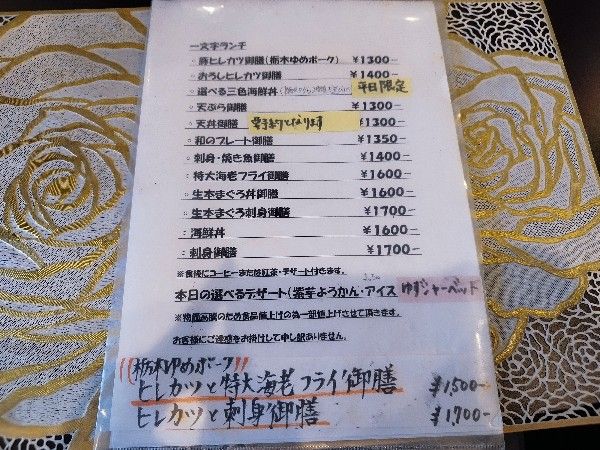 一文字ランチ
◦ 豚ヒレカツ御膳(栃木ゆめポーク) ¥1300-
◦ おろしヒレカツ御膳 ¥1400-
◦ 選べる三色海鮮丼 平日限定
◦ 天ぷら御膳 ¥1300-
◦ 天丼御膳 要予約となります ¥1300-
◦ 和のプレート御膳 ¥1350-
◦ 刺身・焼き魚御膳 ¥1400-
◦ 特大海老フライ御膳 ¥1600-
◦ 生本まぐろ丼御膳 ¥1600-
◦ 生本まぐろ刺身御膳 ¥1700-
◦ 海鮮丼 ¥1600-
◦ 刺身御膳 ¥1700-
※食後にコーヒーまたは紅茶・デザート付きます。
本日の選べるデザート(紫芋ようかん・アイス ゆずシャーベット
※物価高騰のため食品値上げの為一部値上げさせて頂きます。
お客様にご迷惑をお掛けして申し訳ありません。
栃木ゆめポーク
ヒレカツと特大海老フライ御膳 ¥1,500-
ヒレカツと刺身御膳 ¥1,700-